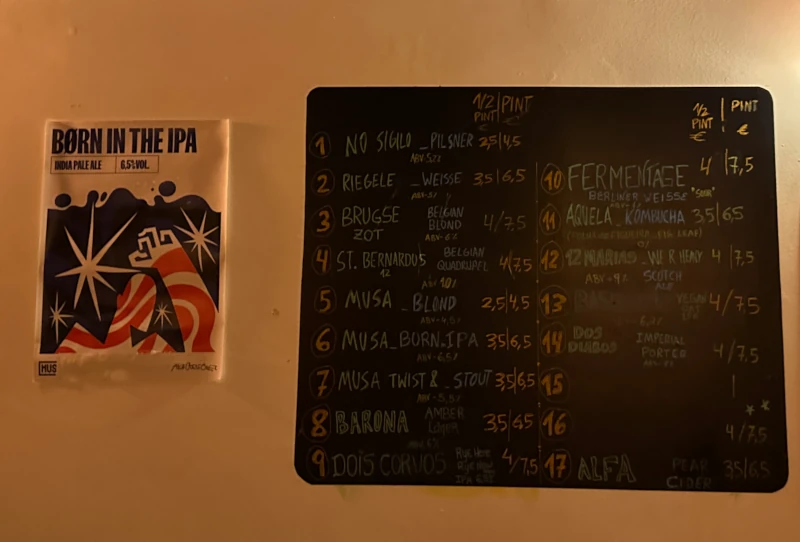 BØRN IN THE IPA
INDIA PALE ALE 6,5% VOL.
MUS
1/2 PINT € | PINT
1 NO SIGILO _ PILSNER 2,5|4,5
2 RIEGELE _ WEISSE 3,5|6,5
3 BRUGSE ZOT BELGIAN BLOND 4/7,5
ABV-6%
4 ST. BERNARDUS 12 BELGIAN QUADRUPEL 4|7,5
ABV 10%
5 MUSA _ BLOND 2,5|4,5
6 MUSA_BORN.IPA 3,5|6,5
ABV-6,5%
7 MUSA TWIST & _ STOUT 3,5|6,5
8 BARONA AMBER LAGER 3,5|6,5
9 DOIS CORVOS 4/7,5
1/2 PINT € | PINT €
10 FERMENTAGE 4|7,5
BERLINER WEISSE "SOUR"
11 AQUELA _ KOMBUCHA 3,5|6,5
12 12 MARIAS _ WEE HEAVY 4|7,5
ABV-9% SCOTCH ALE
13 VEGAN 4/7,5
14 DOS DIABOS IMPERIAL PORTER 4/7,5
15 |
16 4/7,5
17 ALFA PEAR CIDER 3,5|6,5